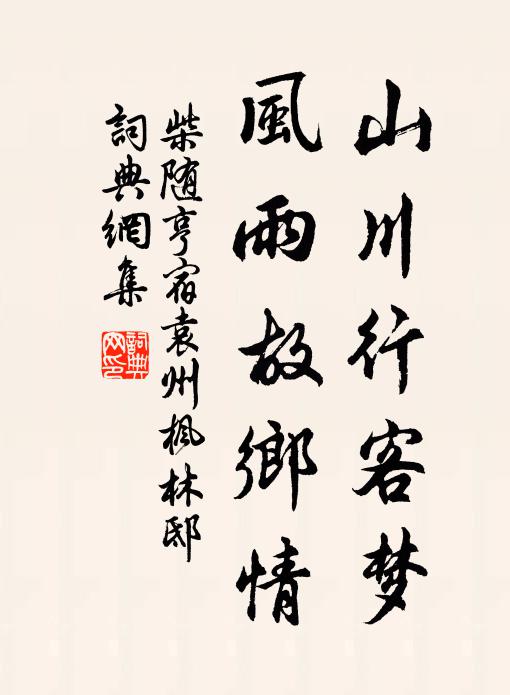 山川行客梦
風雨故鄉情
柴随亨宿袁州楓林邸
詞典網集
詞典网印